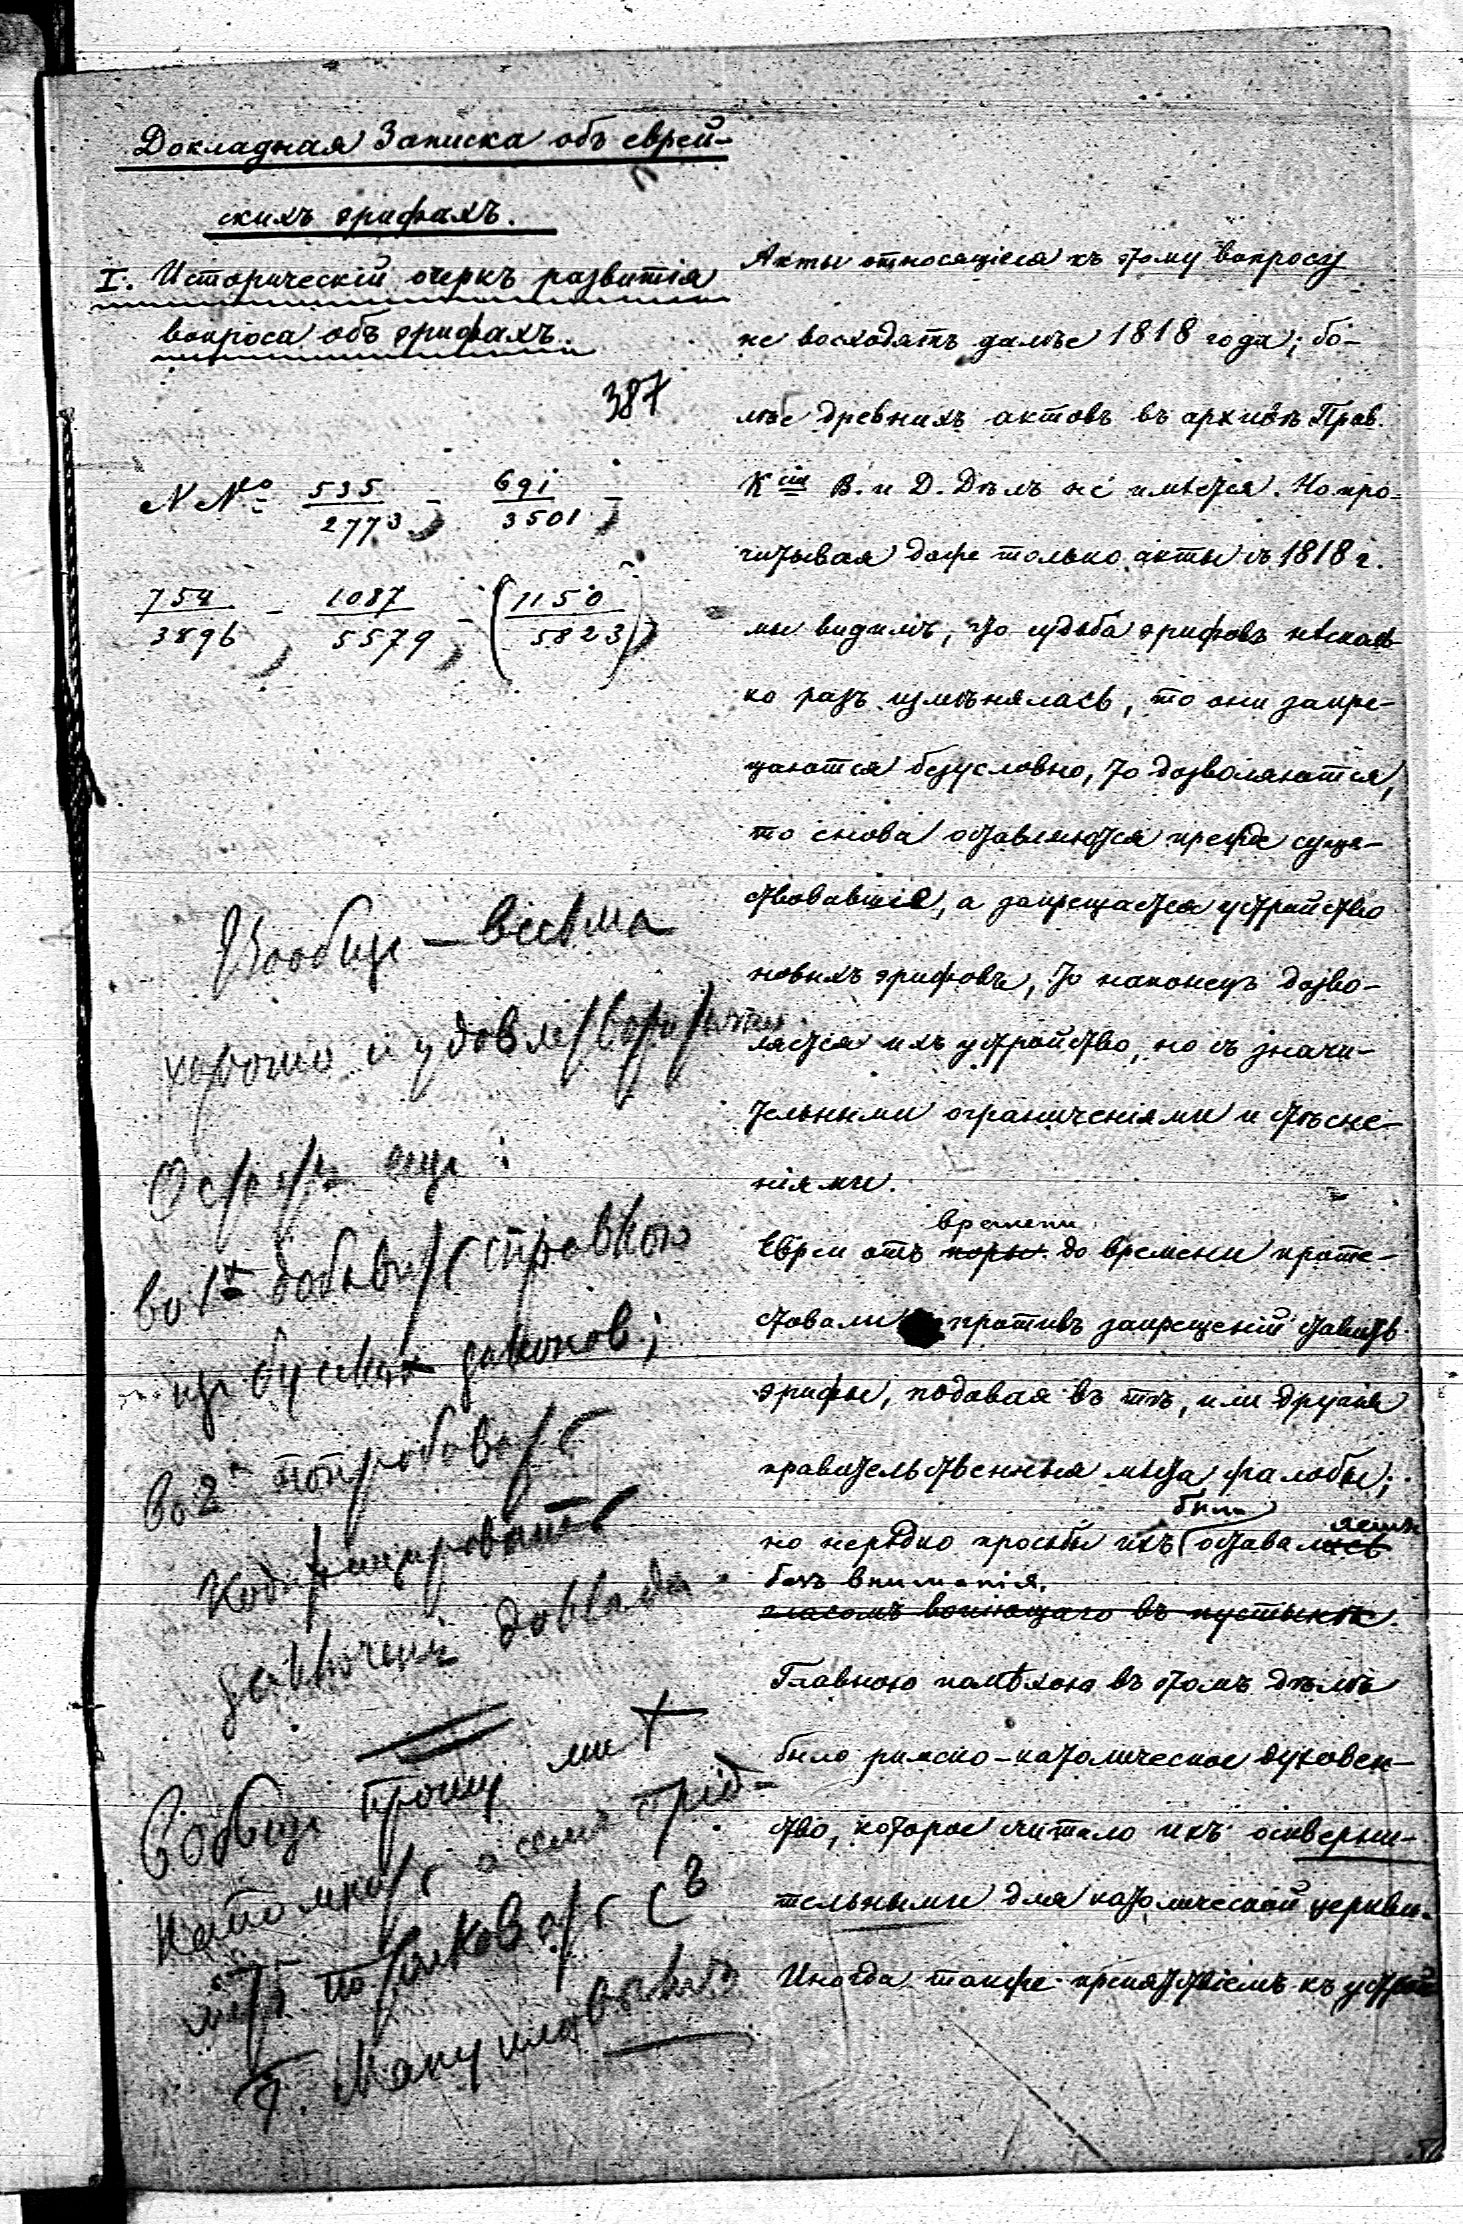 Докладная Записка объ еврей-
скихъ эрифахъ.
I. Историческій очеркъ развитія
вопроса объ эрифахъ.
387
NNо 535/2773, - 691/3501, -
754/3896, - 1087/5579, - (1150/5823),
Вообще - весьма
хорошо и удовлетворительно.
Остается еще:
во 1х добавить справкою
изъ русскихъ законов;
во 2х попробовать
кодифицировать
заключеніе доклада.
Вообще прошу
напомнить о семъ
потолковать съ
Г.
Акты относящіеся къ этому вопросу
не восходятъ далѣе 1818 года; бо-
лѣе древнихъ актовъ въ архивѣ Прав.
Кⁱⁱ В. и Д. Дѣлъ не имѣется. Но про-
читывая даже только акты съ 1818 г.
мы видимъ, что судьба эрифовъ нѣсколь-
ко разъ измѣнялась, то они запре-
щаются безусловно, то дозволяются,
то снова оставляются прежде суще-
ствовавшіе, а запрещается устройство
новыхъ эрифовъ, то наконецъ дозво-
ляется ихъ устройство, но съ значи-
тельными ограниченіями и стѣсне-
ніями.
времени
Евреи отъ поры до времени проте-
стовали противъ запрещеній ставить
эрифы, подавая въ тѣ, или другія
правительственныя мѣста жалобы;
были
но нерѣдко просьбы ихъ оставались
безъ вниманія.
гласомъ вопіющаго въ пустынѣ.
Главною помѣхою въ этомъ дѣлѣ
было римско-католическое духовен-
ство, которое считало ихъ оскверни-
тельными для католической церкви.
Иногда также препятствіемъ къ устрой